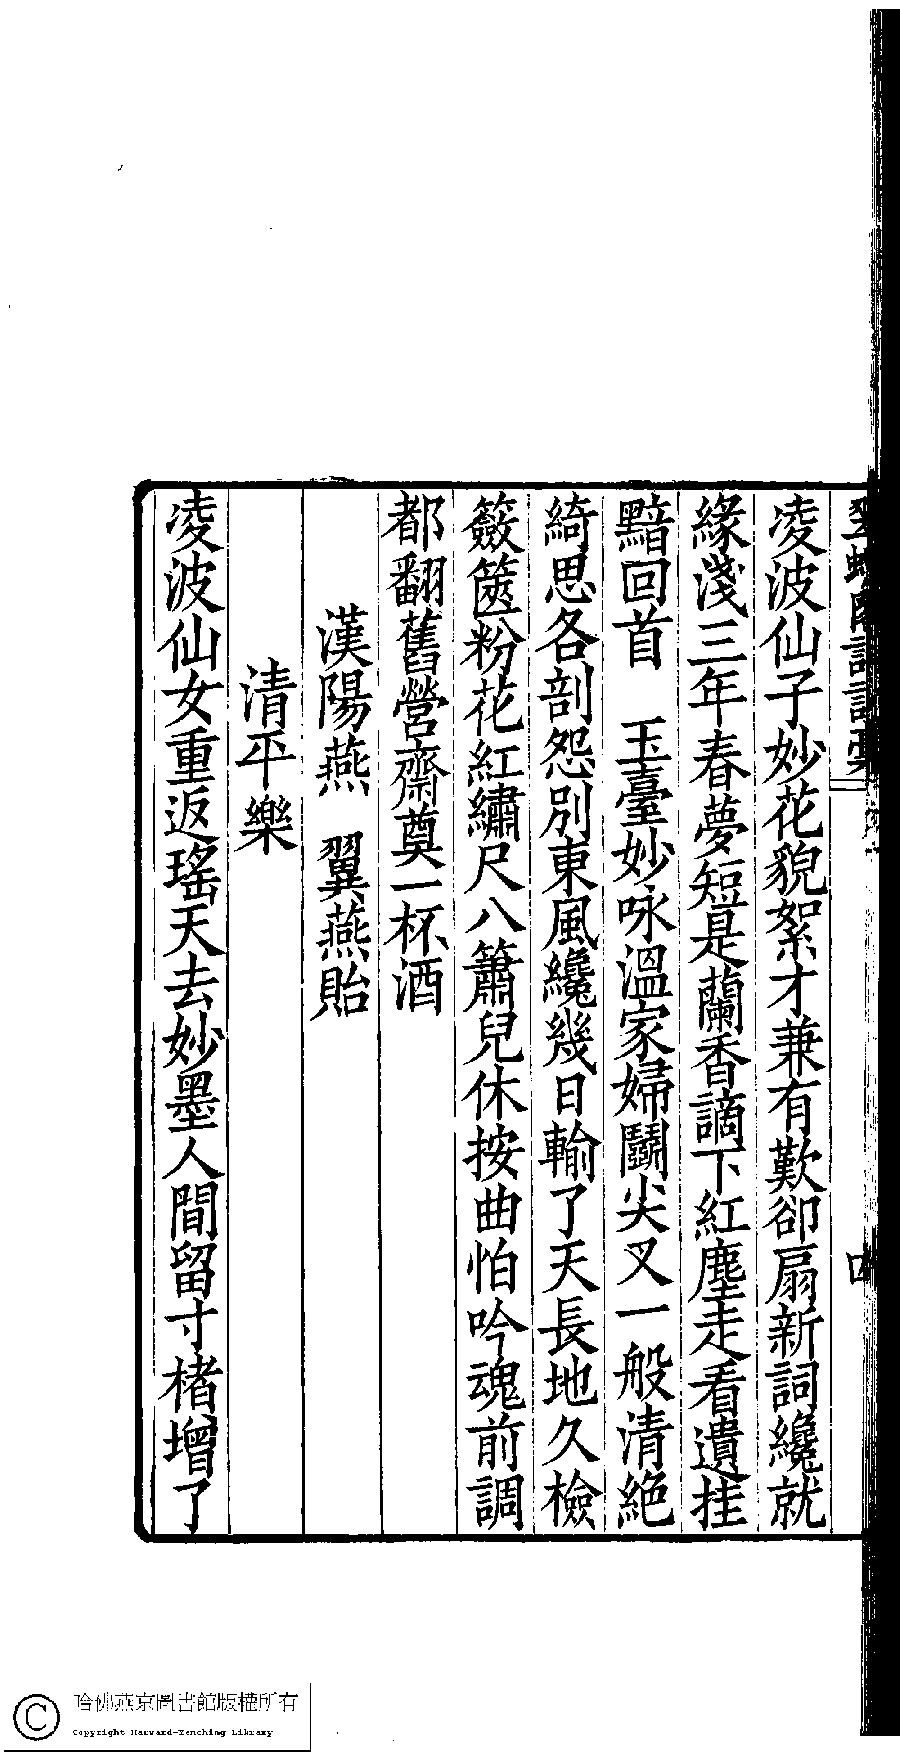 凌波仙子妙花貌絮才兼有歎卻扇新詞纔就
緣淺三年春夢短是蘭香謫下紅塵走看遺挂
黯回首　玉臺妙咏溫家婦鬭尖叉一般清絕
綺思各剖怨別東風纔幾日輸了天長地久檢
籢篋粉花紅繡尺八簫兒休按曲怕吟魂前調
都翻舊營齋奠一杯酒
漢陽燕　翼燕貽
清平樂
凌波仙女重返瑤天去妙墨人間留寸楮增了
哈佛燕京圖書館版權所有
Copyright Harvard-Yenching Library